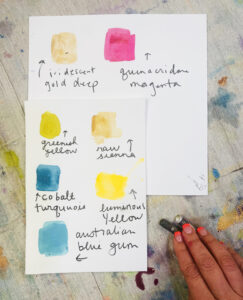 iridescent
gold deep
quinacridone
magenta
greenish
yellow
raw
sienna
cobalt
turquois
lumenous
Yellow
australian
blue gum